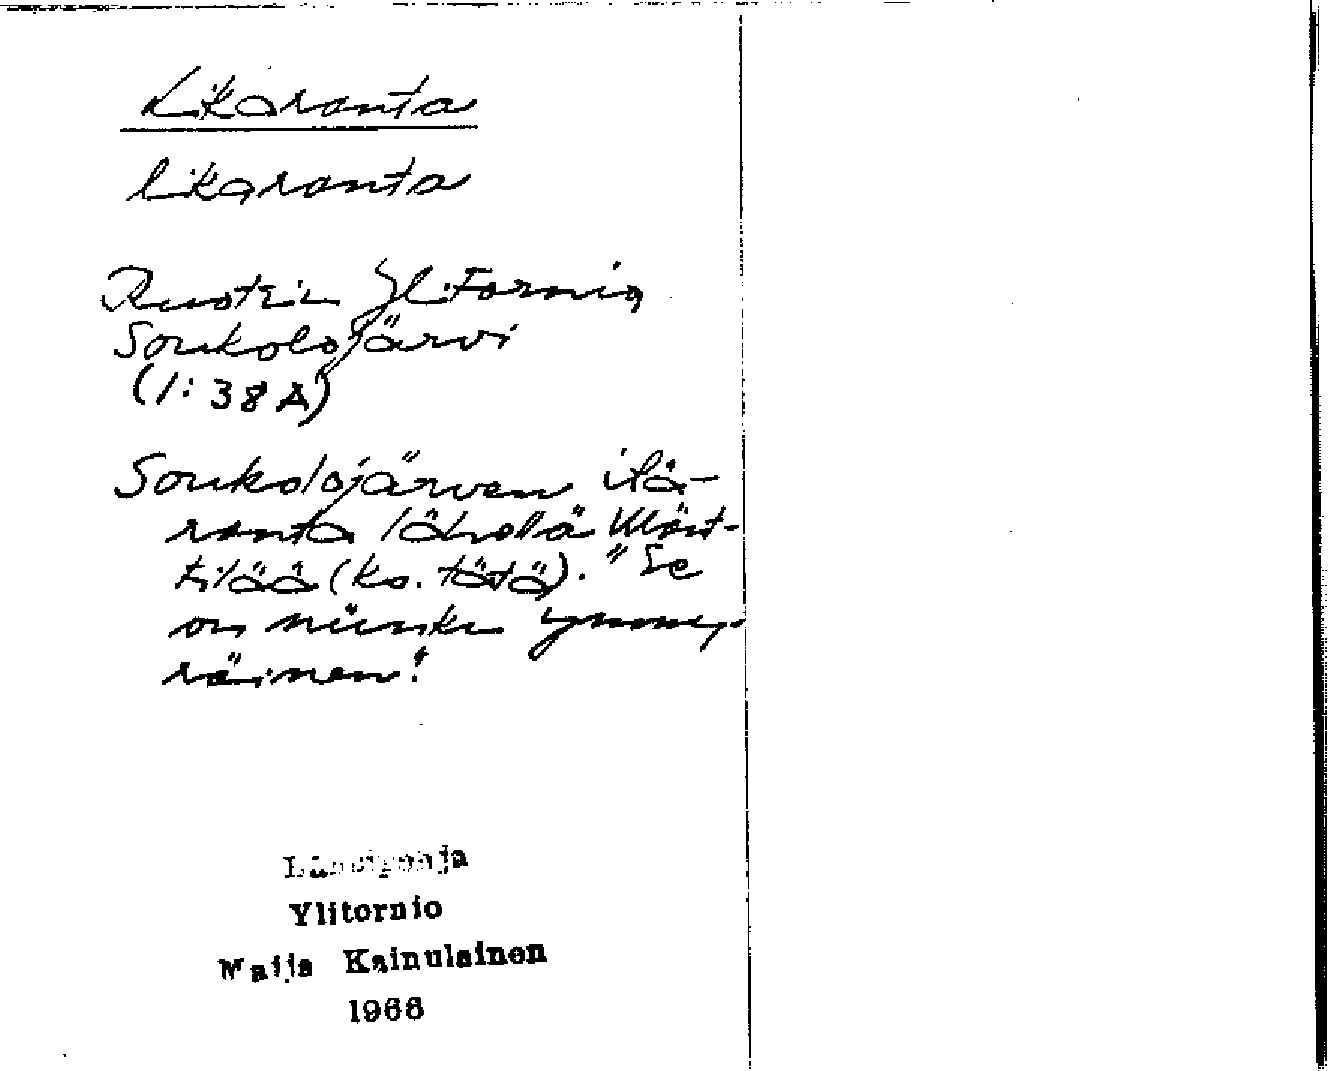 Likaranta
likaranta
Ruotsin Ylitornio
Soukolojärvi
(1:38 A)
Soukolojärven itä-
ranta lähellä
tilää (ks. tätä). "Se
on niinku ymmy-
räinen."
Länsipohja
Ylitornio
Maija Kainulainen
1966